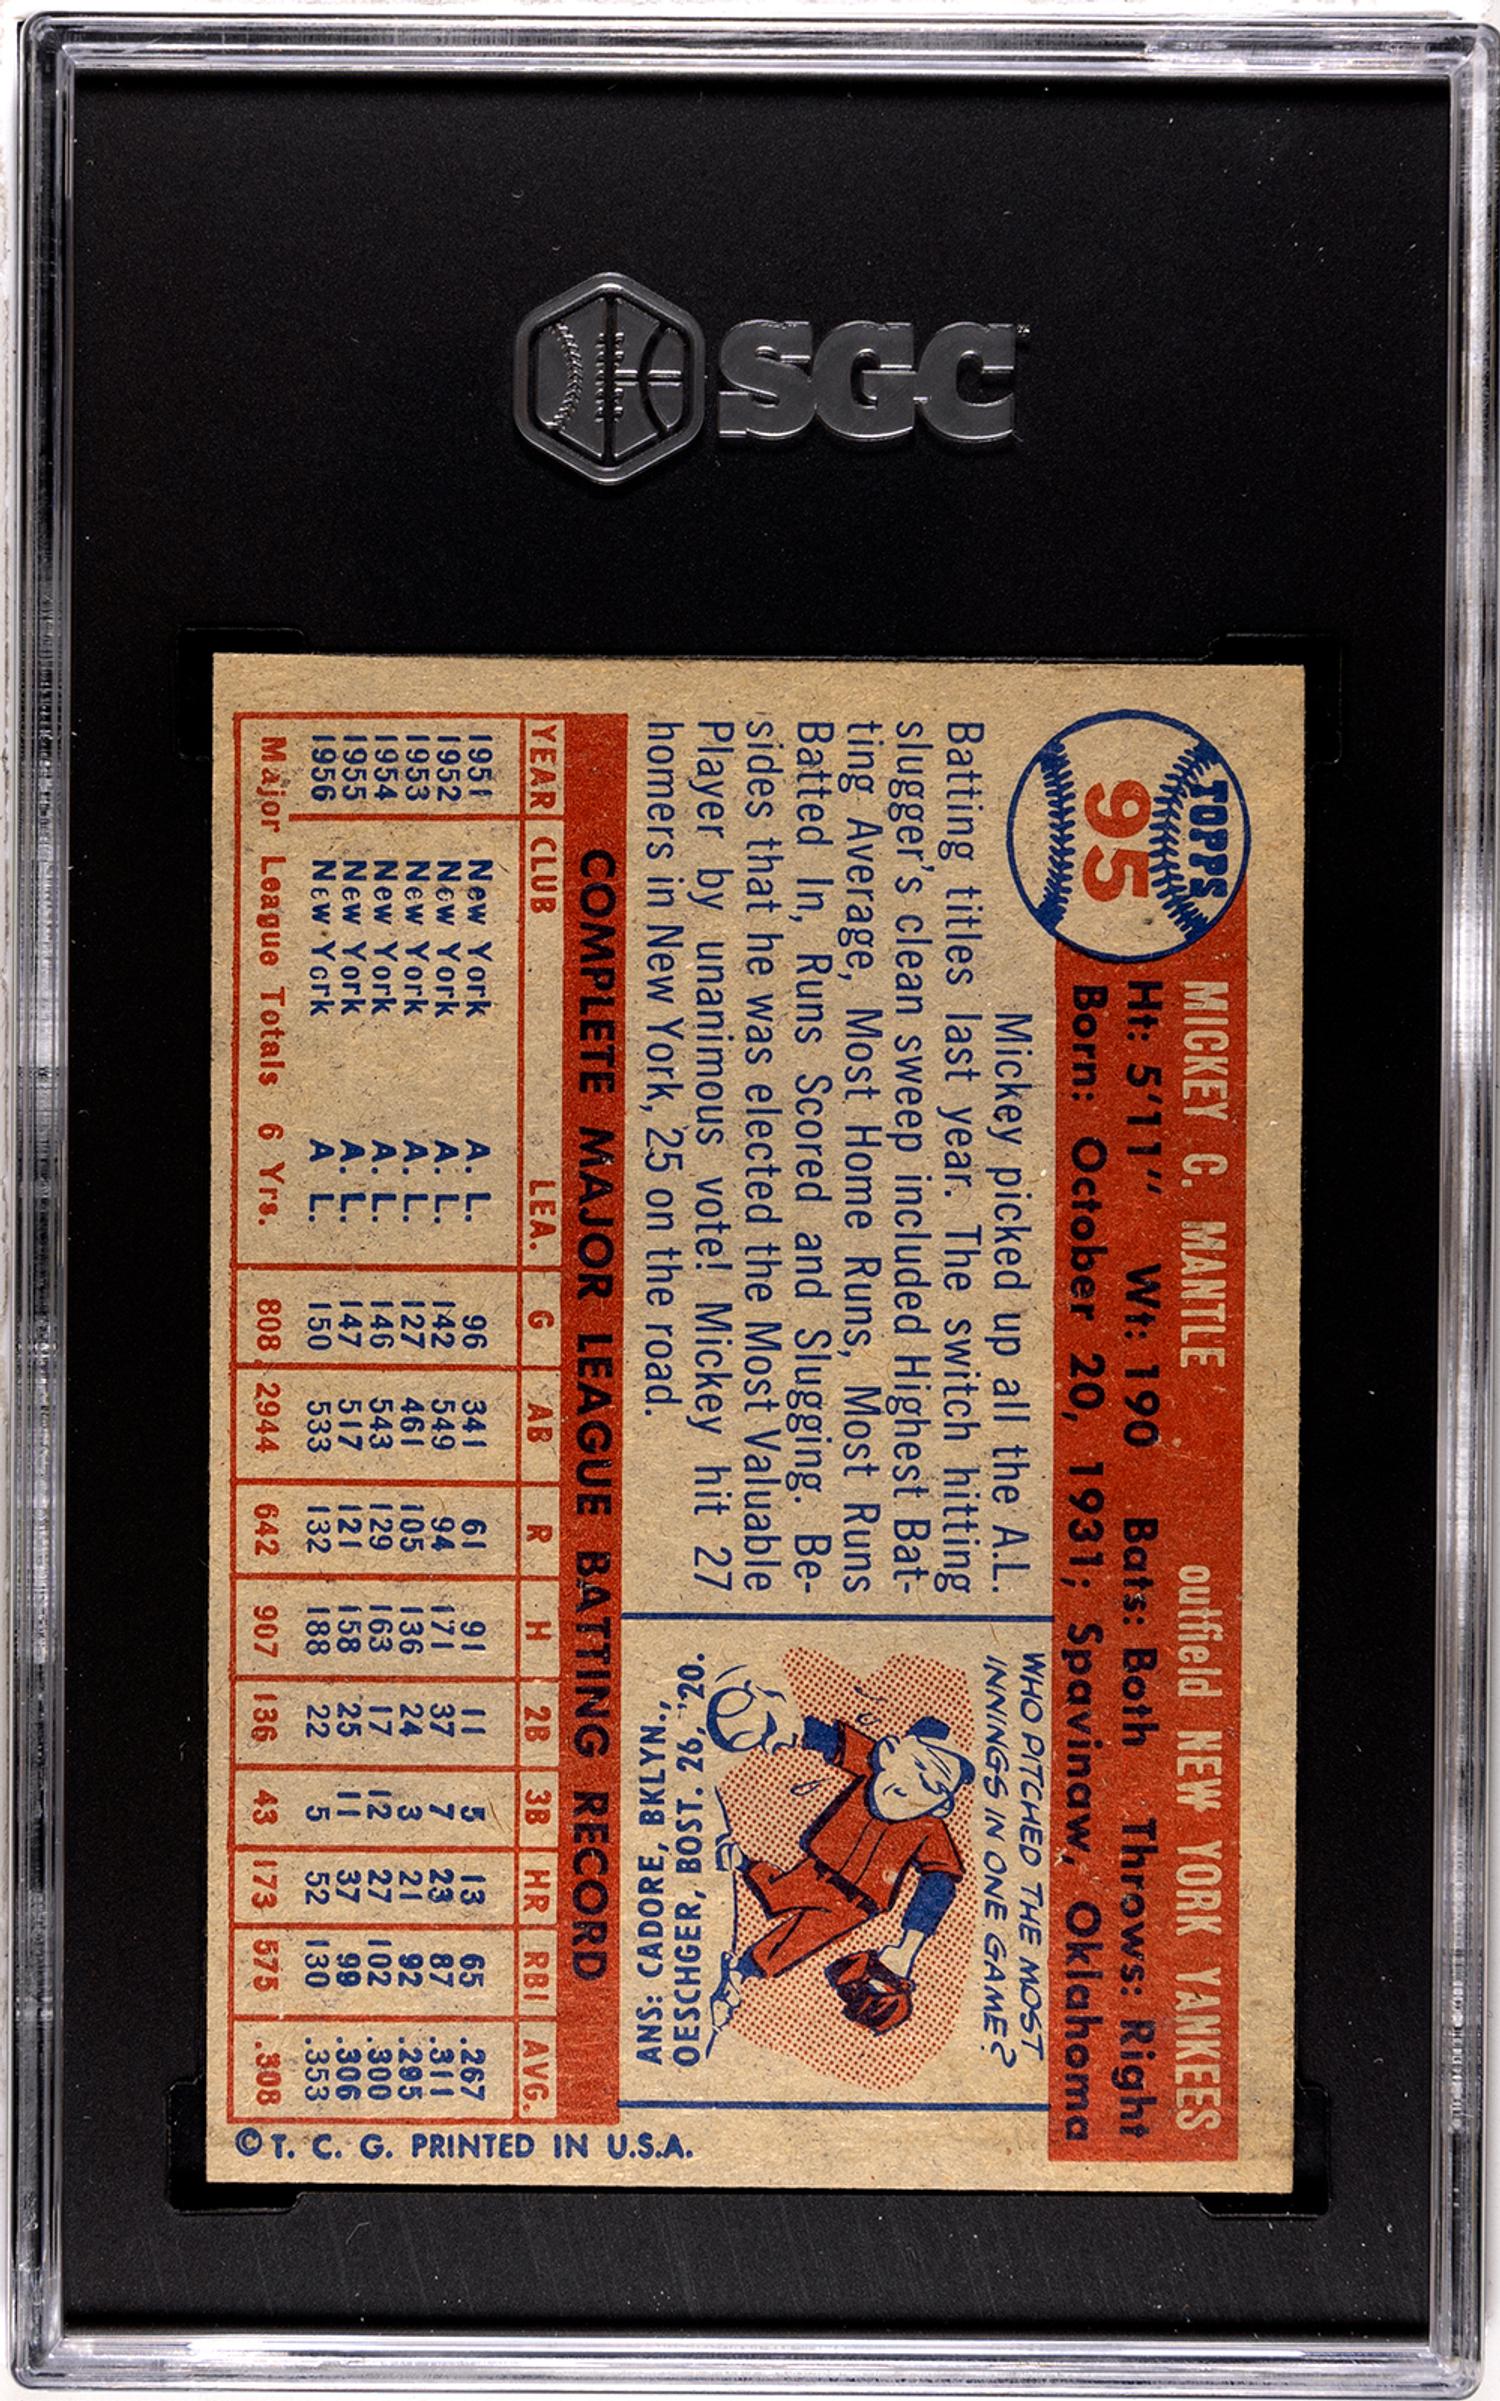 SGC
TOPPS
95
MICKEY C. MANTLE outfield NEW YORK YANKEES
Ht: 5'11" Wt: 190 Bats: Both Throws: Right
Born: October 20, 1931; Spavinaw, Oklahoma
Mickey picked up all the A.L.
Batting titles last year. The switch hitting
slugger's clean sweep included Highest Bat-
ting Average, Most Home Runs, Most Runs
Batted In, Runs Scored and Slugging. Be-
sides that he was elected the Most Valuable
Player by unanimous vote! Mickey hit 27
homers in New York, 25 on the road.
WHO PITCHED THE MOST
INNINGS IN ONE GAME?
ANS: CADORE, BKLYN.,
OESCHGER, BOST. 26, '20.
COMPLETE MAJOR LEAGUE BATTING RECORD
YEAR CLUB LEA. G AB R H 2B 3B HR RBI AVG.
1951 New York A. L. 96 341 61 91 11 5 13 65 .267
1952 New York A. L. 142 549 94 171 37 7 23 87 .311
1953 New York A. L. 127 461 105 136 24 3 21 92 .295
1954 New York A. L. 146 543 129 163 17 12 27 102 .300
1955 New York A. L. 147 517 121 158 25 11 37 99 .306
1956 New York A L. 150 533 132 188 22 5 52 130 .353
Major League Totals 6 Yrs. 808 2944 642 907 136 43 173 575 .308
© T. C. G. PRINTED IN U.S.A.